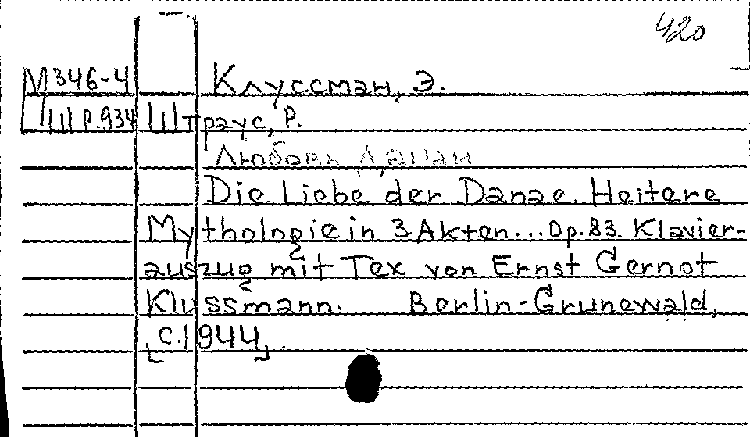 420
М346-4 Клуссман, Э.
Ш Р.934 Штраус, Р.
Любовь Данаи
Die Liebe der Danae. Heitere
Mythologie in 3 Akten... Op. 83. Klavier-
auszug mit Tex von Ernst Gernot
Klussmann. Berlin-Grunewald,
[c.1944].